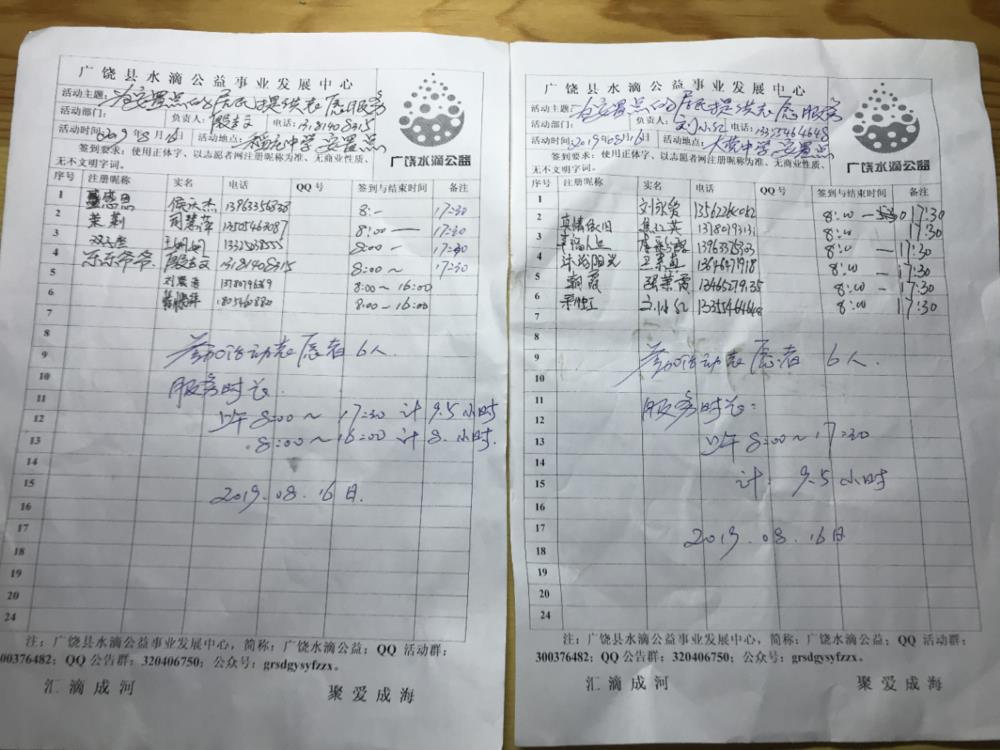 广饶县水滴公益事业发展中心
活动主题: 为安置点的居民提供志愿服务
活动部门: 负责人: 殷志文 电话: 13181408315
活动时间: 2019年8月16 活动地点: 稻庄中学安置点
签到要求: 使用正体字、以志愿者网注册昵称为准、无商业性质、
无不文明字词。
广饶水滴公益
序号 注册昵称 实名 电话 QQ号 签到与结束时间 备注
1 感恩 8:- 17:30
2 茉莉 8:00— 17:30
3 8:00- 17:30
4 东东爷爷 13181408315 8:00~ 17:30
5 8:00~16:00
6 8:00-16:00
7
8
9 参加活动志愿者6人.
10
11 服务时长.
12 上午8:00~17:30 计9.5小时
13 8:00~16:00 计8.小时.
14
15 2019.08.16日.
16
17
18
19
20
24
注: 广饶县水滴公益事业发展中心, 简称: 广饶水滴公益; QQ 活动群:
300376482; QQ 公告群: 320406750; 公众号: grsdgysyfzzx。
汇滴成河 聚爱成海
广饶县水滴公益事业发展中心
活动主题: 为安置点的居民提供志愿服务
活动部门: 负责人: 刘小红 电话: 13355464648
活动时间: 2019年08月16日 活动地点: 大营中学安置点
签到要求: 使用正体字、以志愿者网注册昵称为准、无商业性质、
无不文明字词。
广饶水滴公益
序号 注册昵称 实名 电话 QQ号 签到与结束时间 备注
1 刘永爱 8:00— 17:30
2 真情依旧 8:00 17:30
3 幸福人生 8:00 —17:30
4 沐浴阳光 8:00 —17:30
5 8:00 —17:30
6 8:00 17:30
7
8
9 参加活动志愿者 6人.
10
11 服务时长:
12
13 上午8:00~17:30
14
15 计: 9.5小时
16
17 2019.08.16日
18
19
20
24
注: 广饶县水滴公益事业发展中心, 简称: 广饶水滴公益; QQ 活动群:
300376482; QQ 公告群: 320406750; 公众号: grsdgysyfzzx。
汇滴成河 聚爱成海